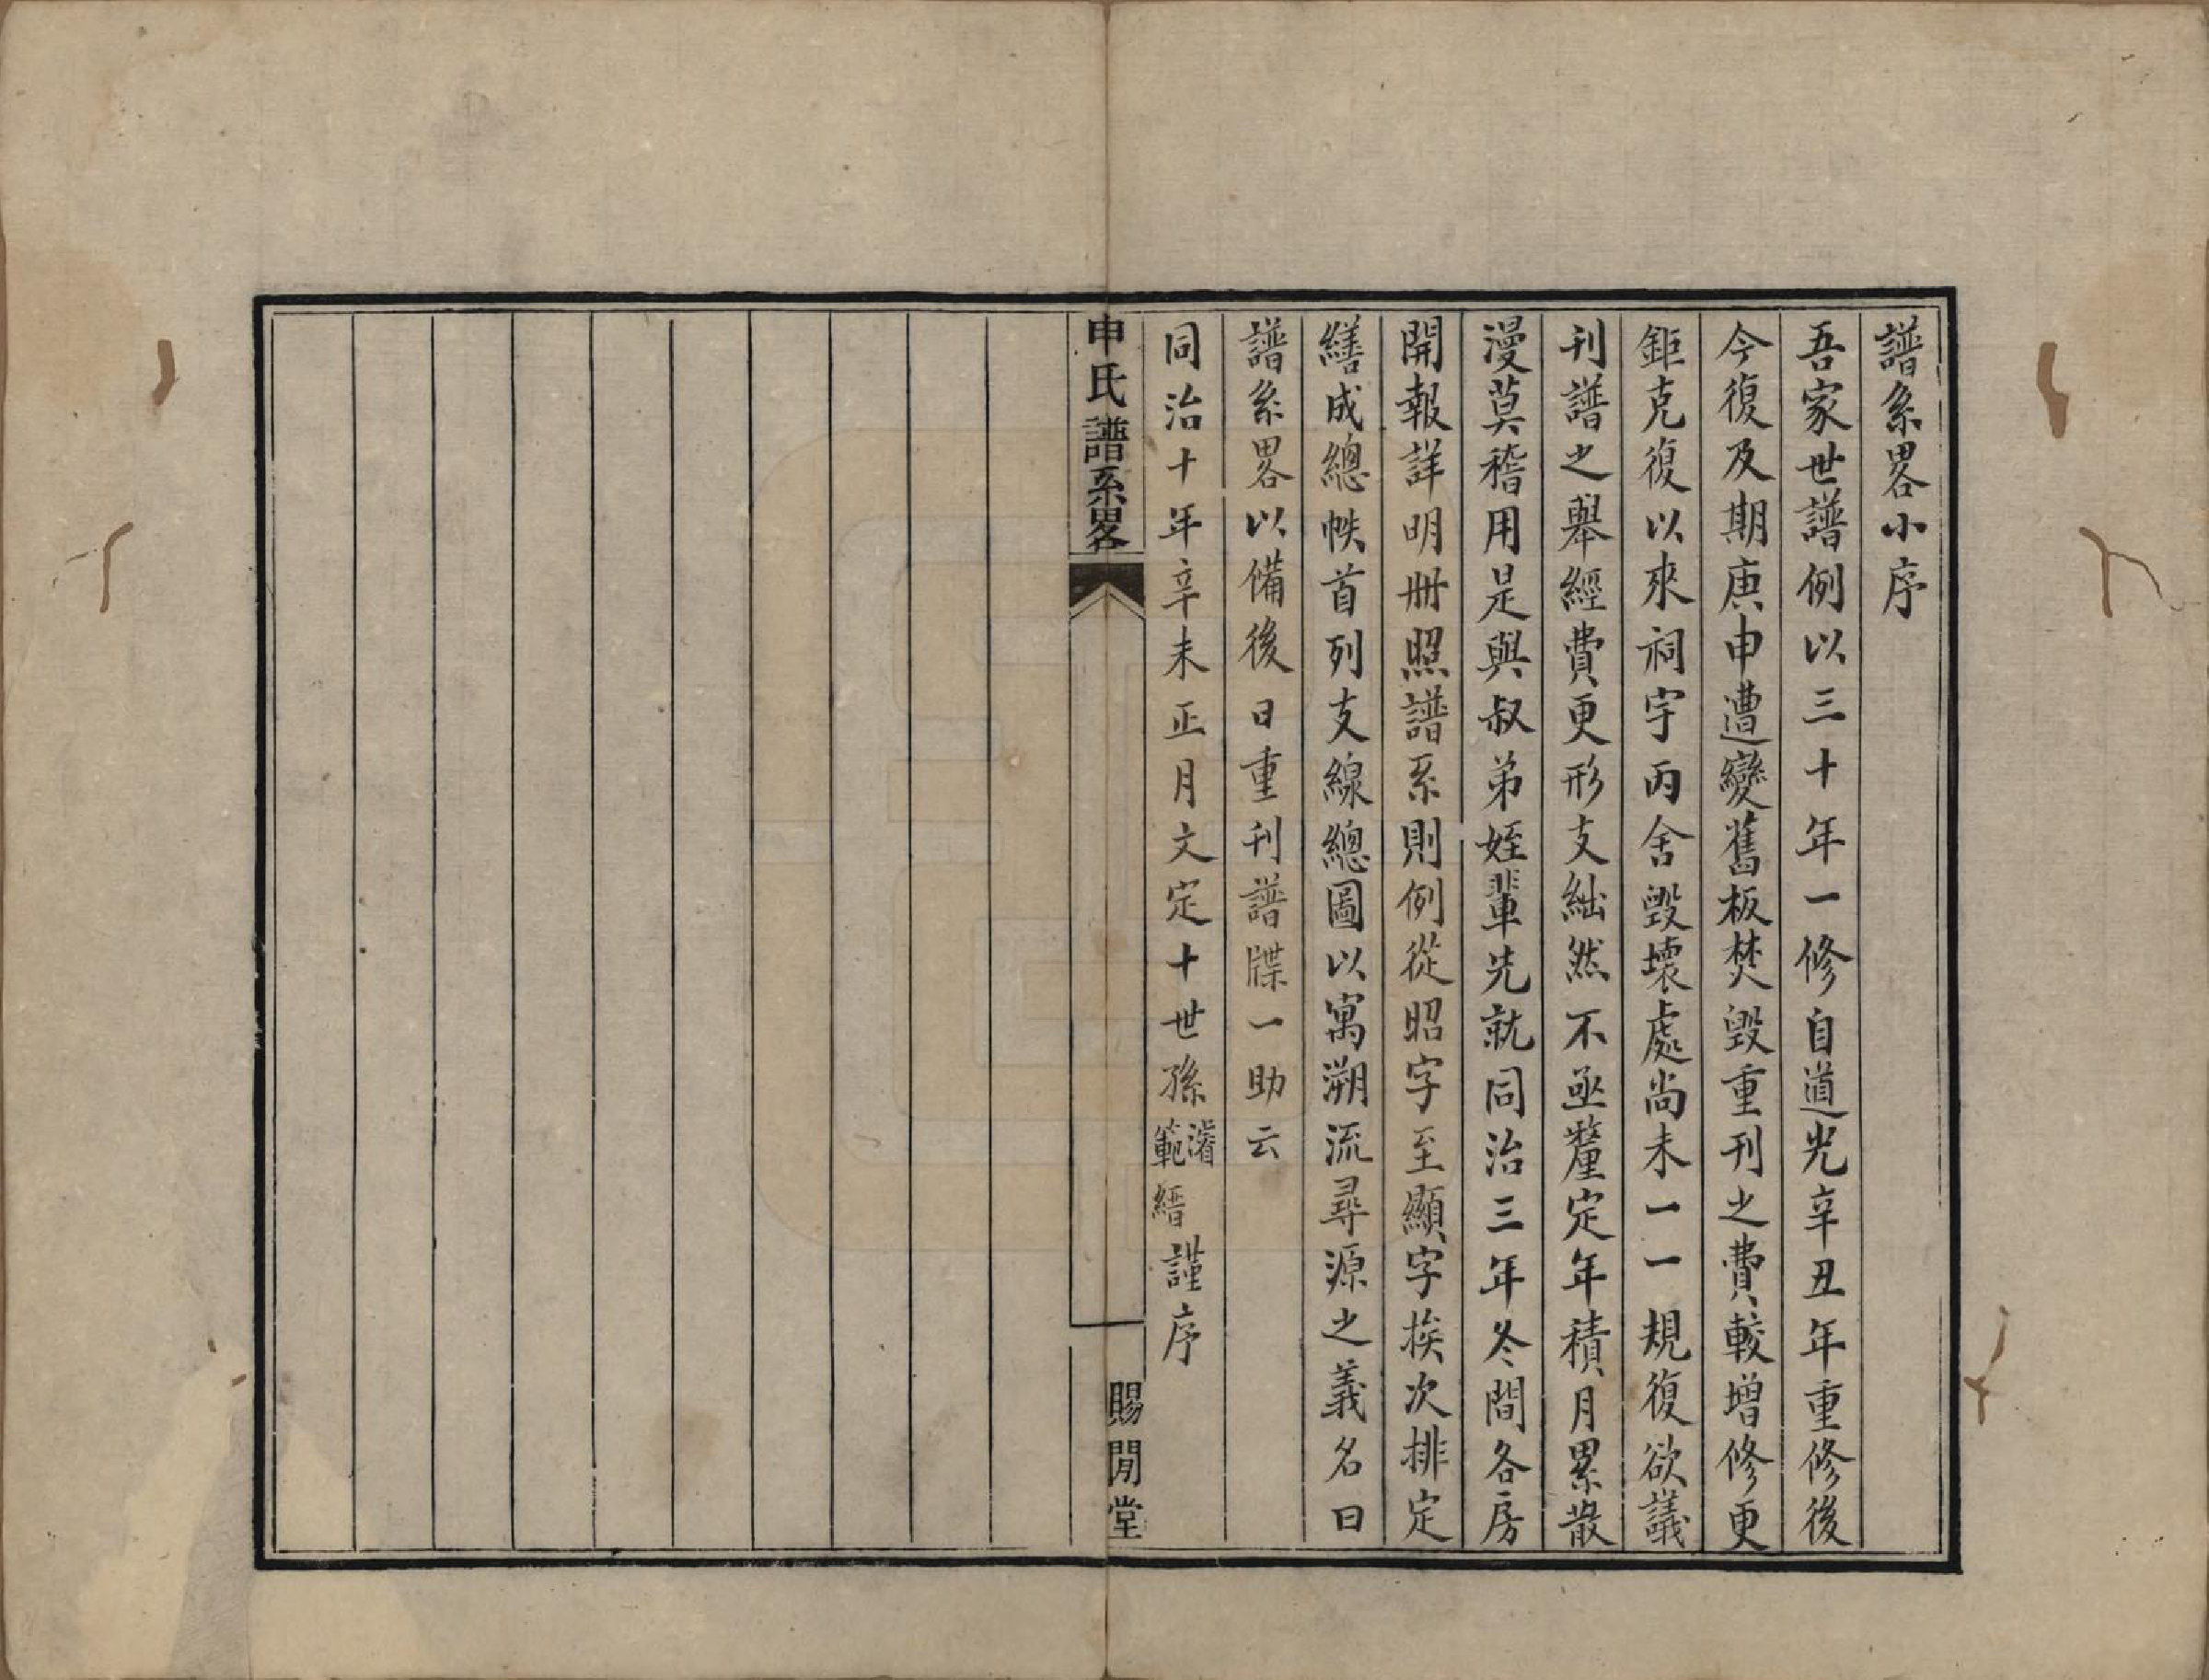 譜系畧小序
吾家世譜例以三十年一修自道光辛丑年重修後
今復及期庚申遭變舊板焚毀重刊之費較增修更
鉅克復以來祠宇丙舍毀壞處尚未一一規復欲議
刊譜之舉經費更形支絀然不亟釐定年積月累散
漫莫稽用是與叔弟姪輩先就同治三年冬間各房
開報詳明册照譜系則例從昭字至顯字挨次排定
繕成總帙首列支線總圖以寓溯流尋源之義名曰
譜系畧以備後日重刊譜牒一助云
同治十年辛未正月文定十世孫濬範縉謹序
申氏譜系畧
賜閒堂